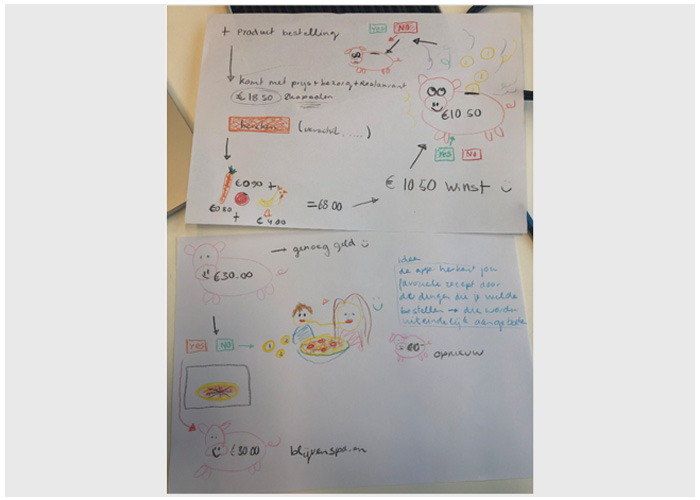 + Product bestelling
YES NO
komt met prijs + bezorg + restaurant
€ 18.50
€10 50
YES NO
€0.90 +
€0.80 +
€ 4.00
= €8.00
€ 10 50 winst
genoeg geld
€30.00
YES NO
idee
de app herkent jou
favoriete recept door
de dingen die je wilde
bestellen → die worden
uiteindelijk aangeboden
€0
opnieuw
€30.00
blijven sparen